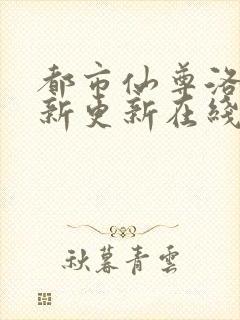 都市仙尊洛
新更新在綫
秋暮青雲